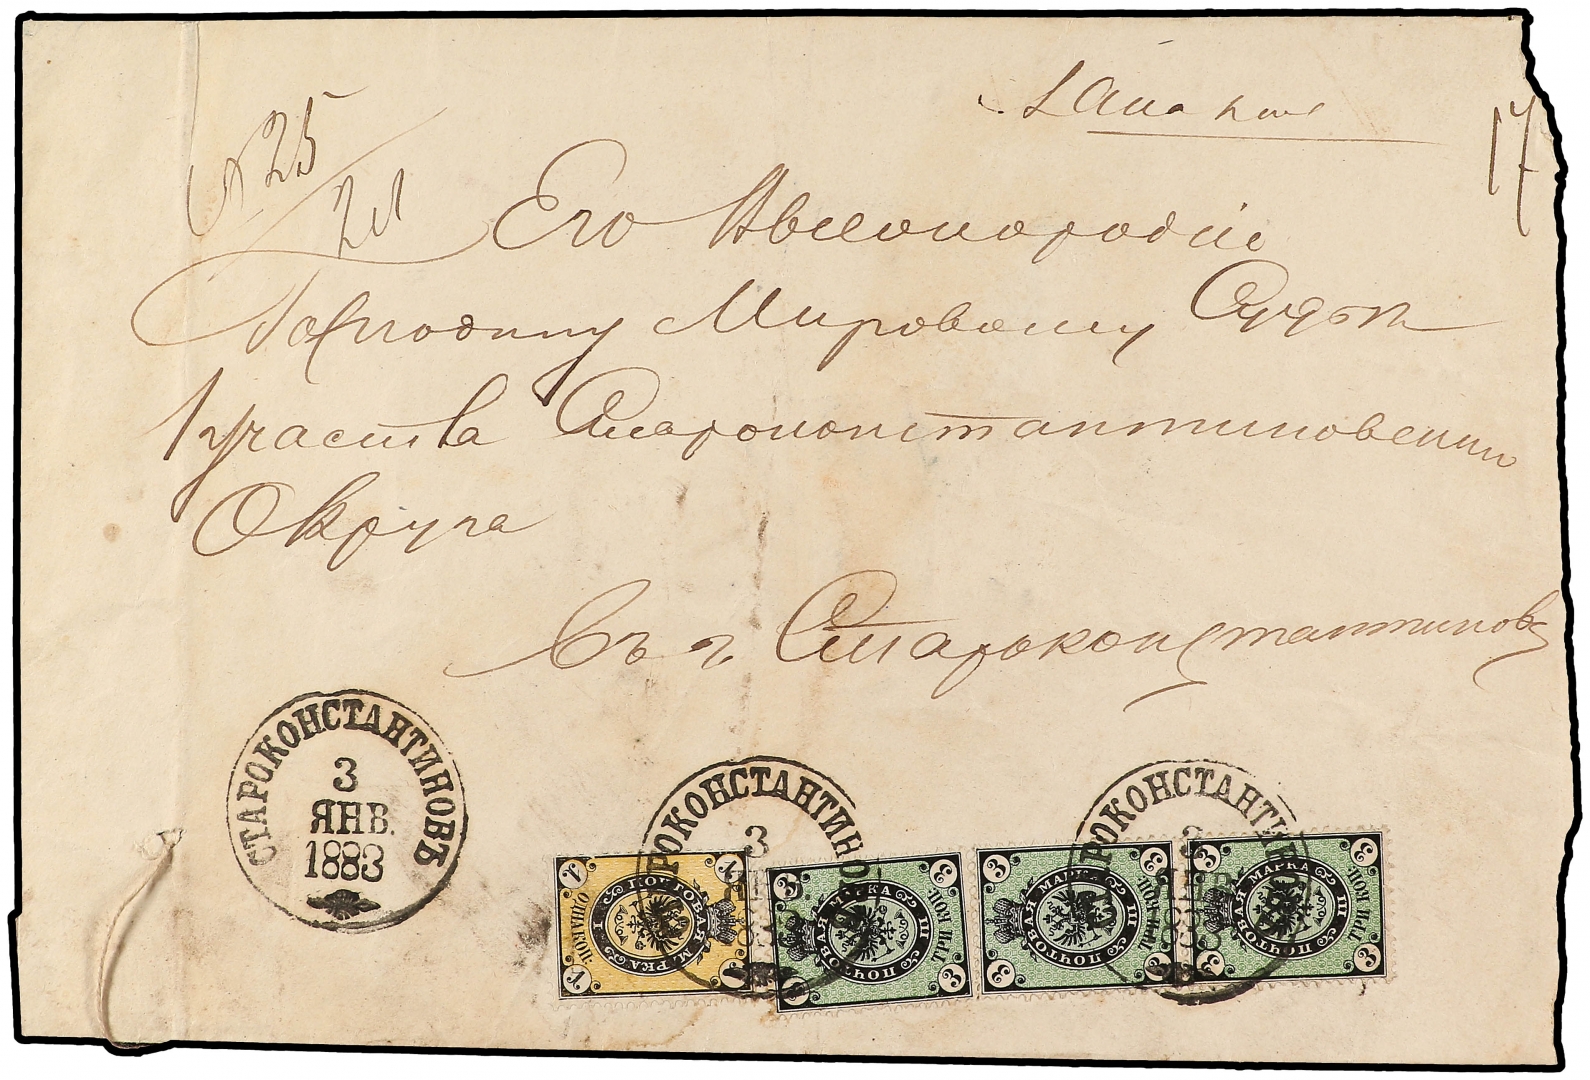 Заказное
17
№ 25
2 л
Его Высокородiю
Господину Мировому Судьи
1 участка Староконстантиновскаго
Округа
Въ г. Староконстантиновѣ
СТАРОКОНСТАНТИНОВЪ
3
ЯНВ.
1883
СТАРОКОНСТАНТИНОВЪ
3
СТАРОКОНСТАНТИНОВЪ
3
ЯНВ.
1883
1 ПОЧТОВАЯ МАРКА 1 ОДНА КОП.
3 ПОЧТОВАЯ МАРКА III ТРИ КОП.
3 ПОЧТОВАЯ МАРКА III ТРИ КОП.
3 ПОЧТОВАЯ МАРКА III ТРИ КОП.